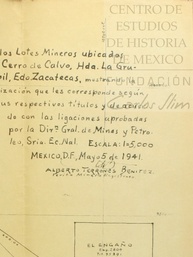 CENTRO DE
ESTUDIOS
DE HISTORIA
DE MEXICO
FUNDACIÓN
Carlos Slim
los Lotes Mineros ubicados
Cerro de Calvo, Hda. La Gru-
Edo. Zacatecas, mostrando la
ización que les corresponde según
us respectivos títulos y de
de con las ligaciones aprobadas
por la Div. Gral. de Minas y Petro-
leo, Sria. Ec. Nal. ESCALA: 1:5,000
MEXICO, D.F., Mayo 5 de 1941.
ALBERTO TERRONES BENITEZ
EL ENGAÑO